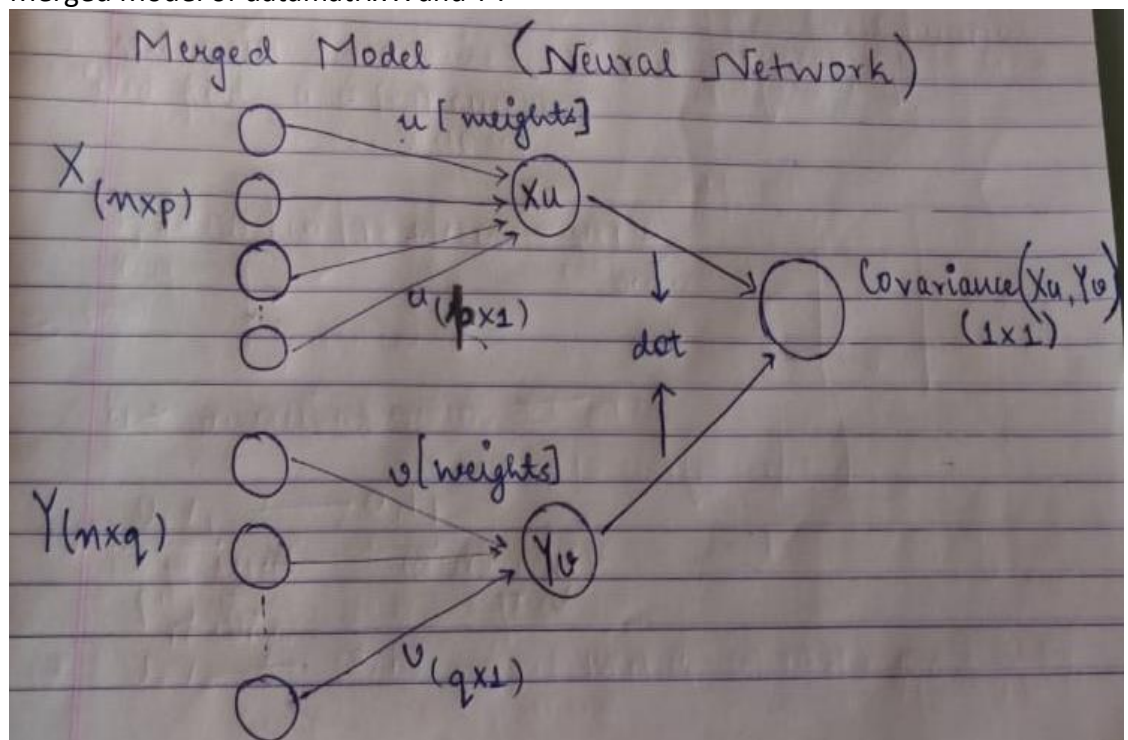 Merged Model (Neural Network)
u [weights]
X (nxp)
Xu
u (px1)
Covariance(Xu, Yv)
(1x1)
dot
v[weights]
Y(nxq)
Yv
v (qx1)